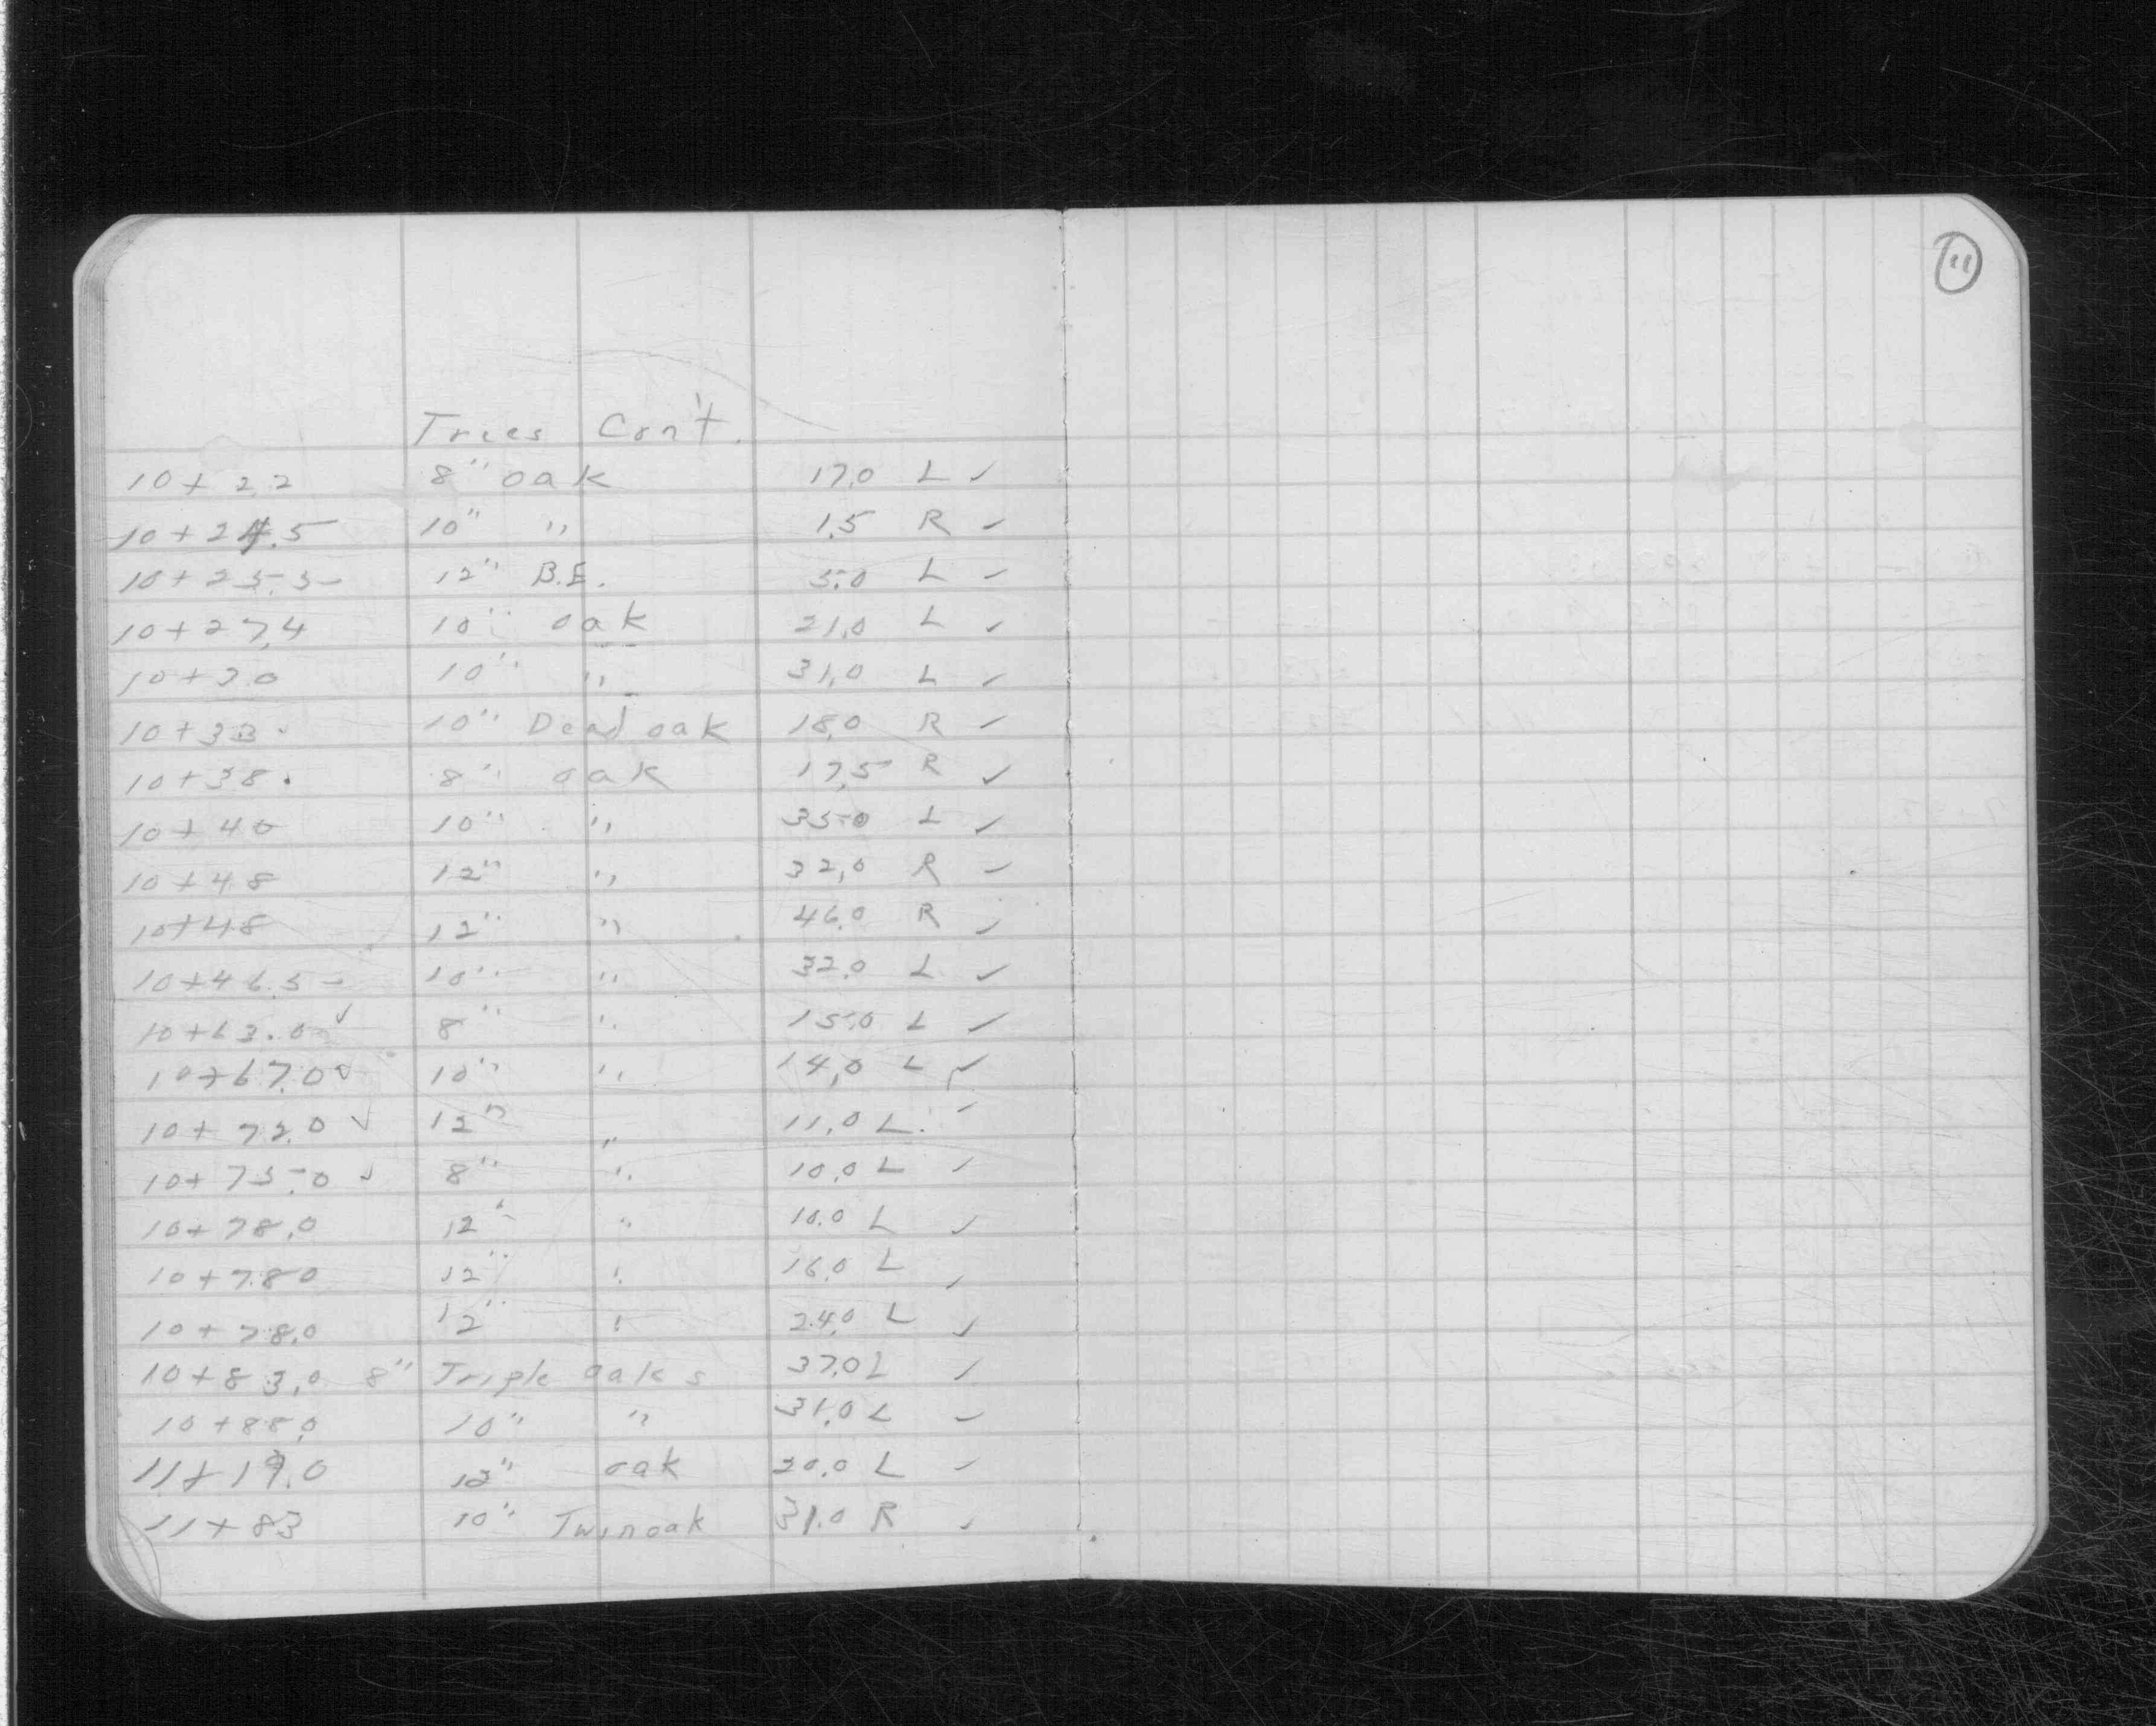 11
Trees Con't.
10+22 8" oak 17.0 L ✓
10+24.5 10" " 1.5 R ✓
10+25.5 12" B.E. 5.0 L ✓
10+27.4 10" oak 21.0 L ✓
10+30 10" " 31.0 L ✓
10+33 10" Dead oak 18.0 R ✓
10+38. 8" oak 17.5 R ✓
10+40 10" " 35.0 L ✓
10+48 12" " 32.0 R ✓
10+48 12" " 46.0 R ✓
10+46.5 10" " 32.0 L ✓
10+63.0 ✓ 8" " 15.0 L ✓
10+67.0 ✓ 10" " 14.0 L ✓
10+72.0 ✓ 12" " 11.0 L ✓
10+75.0 ✓ 8" " 10.0 L ✓
10+78.0 12" " 10.0 L ✓
10+78.0 12" " 16.0 L ✓
10+78.0 12" " 24.0 L ✓
10+83.0 8" Triple oaks 37.0 L ✓
10+88.0 10" " 31.0 L ✓
11+19.0 12" oak 20.0 L ✓
11+83 10" Twin oak 31.0 R ✓